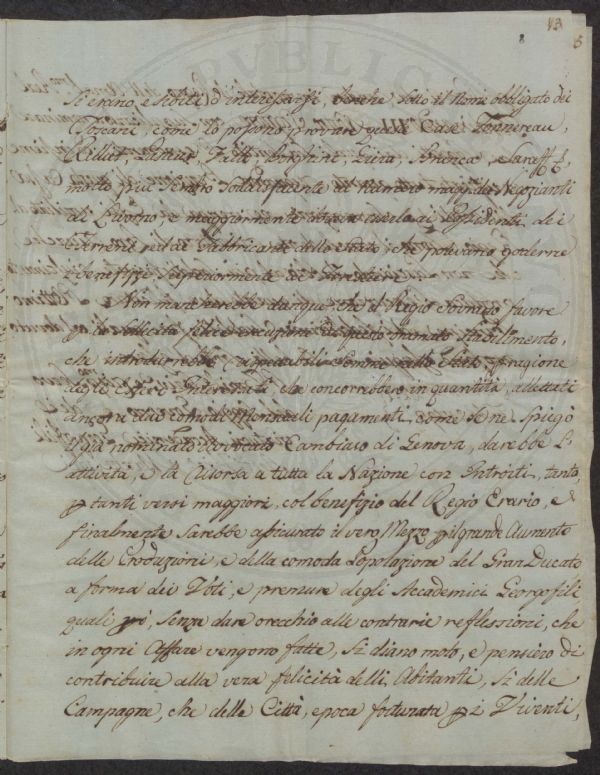 43
8
8
si erano esibiti d'interessarsi, benche sotto il Nome obbligato dei
Toscani, come lo possono provare quelle Case Tonnereau,
Millet, Fetti, Borghini, e Sareff &,
molto piu sembrò sodisfacente al Numero magg. de Negozianti
di Livorno e maggiormente ai Possidenti dei
Terreni ed ai Fabbricanti dello Stato, che potevano goderne
i benefizi superiormente ai Forestieri.
Non mancherebbe dunque che il Regio Sovrano favore
p la sollecita felice esecuzione di questo bramato Stabilimento,
che introdurrebbe rispettabili Somme nello Stato, p ragione
degli Esteri Interessati che concorrebbero in quantità, allettati
ancora dai comodi Mensuali pagamenti, come se ne spiegò
il già nominato Avvocato Cambiaso di Genova, darebbe l'
attività, e la risorsa a tutta la Nazione con Introiti, tanto,
p tanti versi maggiori, col benefizio del Regio Erario, e
finalmente sarebbe assicurato il vero Mezzo p il grande Aumento
delle Produzioni, e della comoda Popolazione del Gran Ducato
a forma dei Voti, e premure degli Accademici Georgofili
quali p̃ò, senza dare orecchio alle contrarie reflessioni, che
in ogni Affare vengono fatte, si diano moto, e pensiero di
contribuire alla vera felicità delli Abitanti, sì delle
Campagne, che delle Città, epoca fortunata p i Viventi,